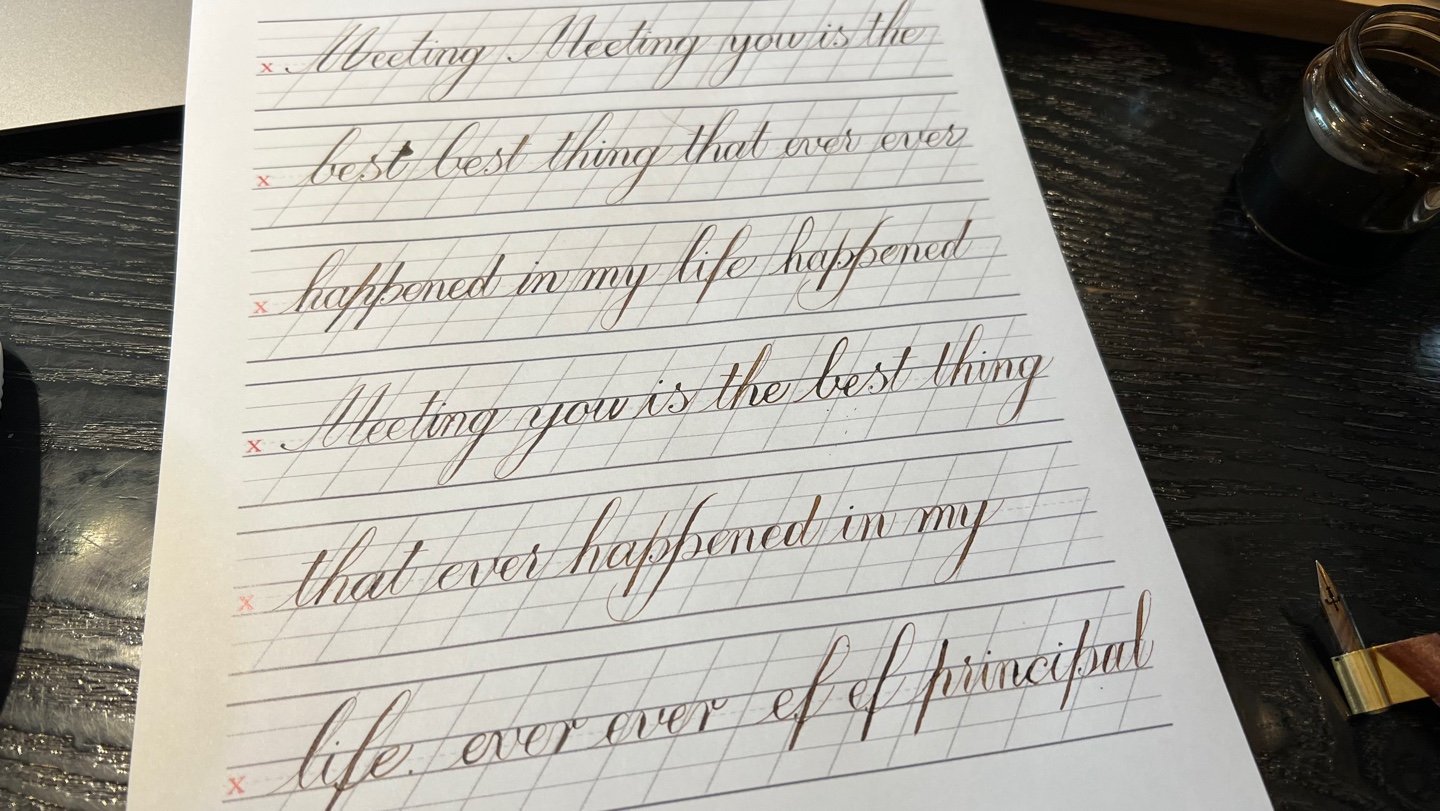 x Meeting Meeting you is the
x best best thing that ever ever
x happened in my life happened
x Meeting you is the best thing
x that ever happened in my
x life. ever ever ef ef principal